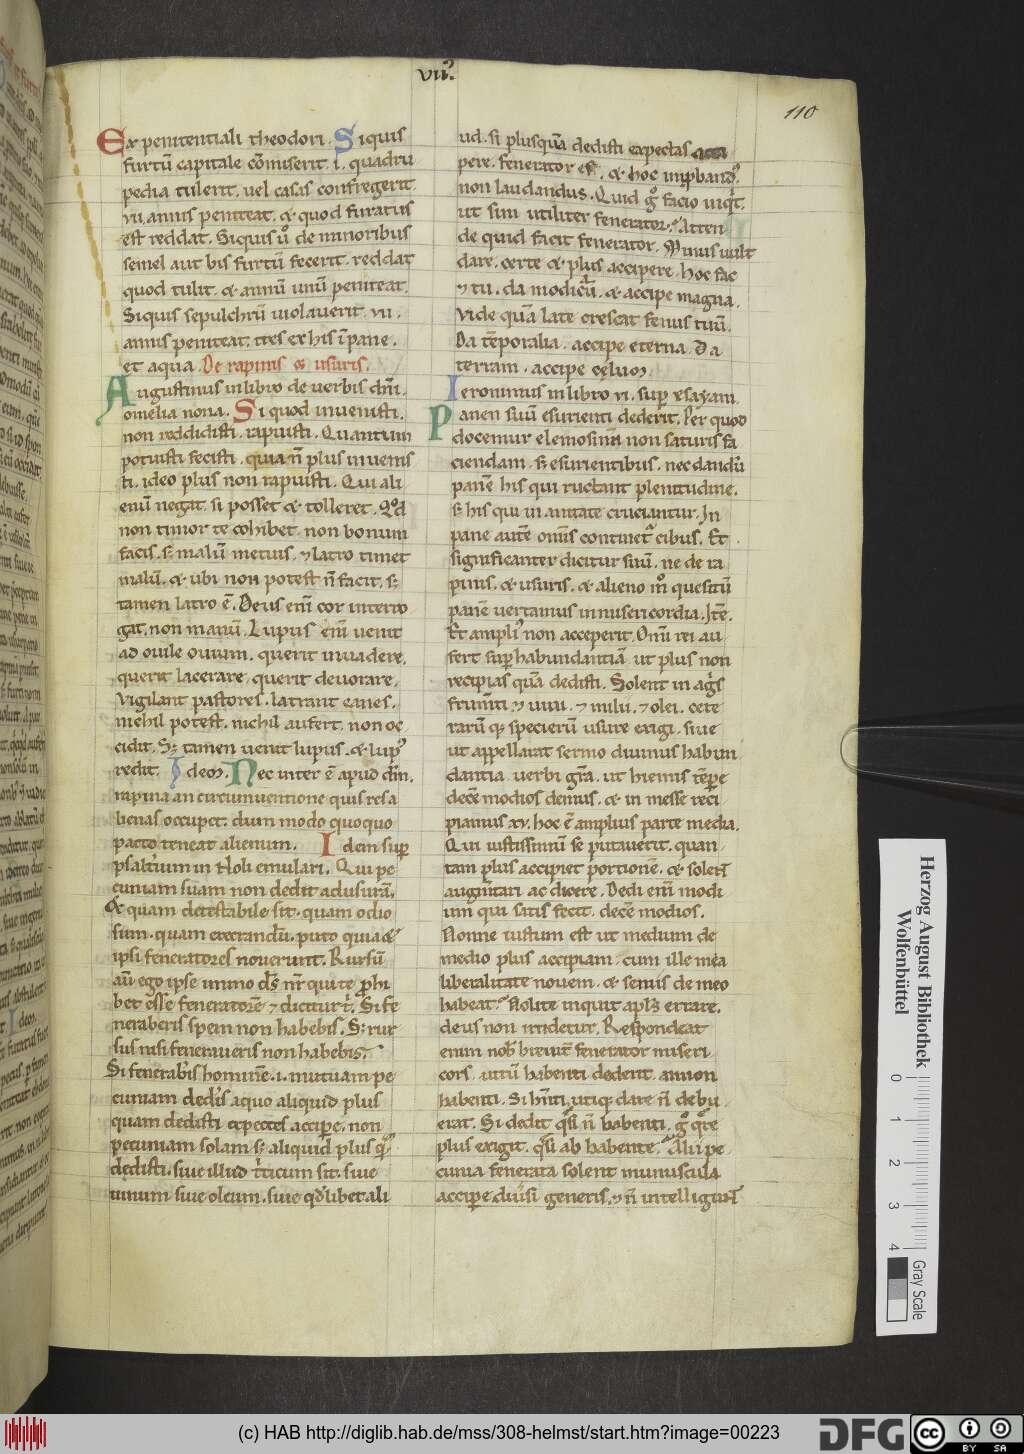 vii.
110
Ex penitentiali theodori. Siquis
furtū capitale cōmiserit .i. quadru
pedia tulerit. uel casas confregerit.
vii. annis peniteat. & quod furatus
est reddat. Siquis ů de minoribus
semel aut bis furtū fecerit. reddat
quod tulit. & annū unū peniteat.
Siquis sepulchrū uiolauerit. vii.
annis peniteat. tres ex his ī pane.
et aqua. De rapinis & usuris.
Augustinus in libro de uerbis dn̄i.
omelia nona. Si quod inuenisti.
non reddidisti. rapuisti. Quantum
potuisti fecisti. quia n̄ plus inuenis
ti. ideo plus non rapuisti. Qui ali
enū negat. si posset & tolleret. Qd̄
non timor te cohibet. non bonum
facis. s; malū metuis. ⁊ latro timet
malū. & ubi non potest n̄ facit. s;
tamen latro ē. Deus eni͞m cor interro
gat. non manū. Lupus eni͞m uenit
ad ouile ouium. querit inuadere.
querit lacerare. querit deuorare.
Vigilant pastores. latrant canes.
nichil potest. nichil aufert. non oc
cidit. S; tamen uenit lupus. & lup⁹
redit. Idem. Nec inter ē apud dm̄.
rapina an circumuentione quis res a
lienas occupet. dum modo quoquo
pacto teneat alienum. Idem sup̄
psalt̄ium in Noli emulari. Qui pe
cuniam suam non dedit ad usurā.
& quam detestabile sit. quam odio
sum. quam execrandū. puto quia &
ipsi feneratores nouerunt. Rursū
aū ego ipse immo ds̄ nr̄ qui te prohi
bet esse feneratorē ⁊ dicitur t̄. Si fe
neraberis spem non habebis. S; rur
sus nisi feneraueris non habebis.
Si fenerabis homine .i. mutuam pe
cuniam dedis a quo aliquid plus
quam dedisti expectes accipe. non
pecuniam solam s; aliquid plus q̄
dedisti. siue illud triticum sit. siue
uinum siue oleum. siue qd libet ali
ud. si plusquā dedisti expectas acci
pere. fenerator es. & hoc improband⁹
non laudandus. Quid g̊ facio inqt.
ut sim utiliter fenerator. Atten
de quid facit fenerator. Minus uult
dare. certe & plus accipere. hoc fac
⁊ tu. da modicū. & accipe magna.
Vide quā late crescat fenus tuū.
Da tēporalia. accipe eterna. Da
terram. accipe cęlum.
Ieronimus in libro vi. sup̄ ysayam.
Panem suū esurienti dederit. Per quod
docemur elemosinā non saturis fa
ciendam. s; esurientibus. nec dandū
panē his qui ructant plenitudine.
s; his qui in uanitate cruciantur. In
pane autē omīs continet᷑ cibus. Et
significanter dicitur suū. ne de ra
pinis. & usuris. & alieno m̊ quesitū
panē uertamus in misericordia. Itē.
Et ampli⁹ non acceperit. Omni rei au
fert sup̄habundantiā ut plus non
recipias quā dedisti. Solent in agris
frumti ⁊ uini. ⁊ milii. ⁊ olei. cete
rarū q; specierū usure exigi. siue
ut appellauit sermo diuinus habun
dantia. uerbi gra. ut hiemis tēpe
decē modios demus. & in messe reci
piamus xv. hoc ē amplius parte media.
Qui iustissimū se putauerit. quar
tam plus accipiet portionē. & solent
augmtari ac dicere. Dedi eni͞m modi
um qui satis fecit. decē modios.
Nonne iustum est ut medium de
medio plus accipiam. cum ille mea
liberalitate nouem. & semis de meo
habeat. Nolite inquit aplꝰs errare.
deus non irridetur. Respondeat
enim nob breuit̄ fenerator miseri
cors. utrū habenti dederit. an non
habenti. Si hn̄ti utiq; dare n̄ debu
erat. Si dedit qsi n̄ habenti. g̊ qre
plus exigit. qsi ab habente. Alii pe
cunia fenerata solent munuscula
accipe diu̍si generis. ⁊ n̄ intelligunt
Herzog August Bibliothek
Wolfenbüttel
0 1 2 3 4
Gray Scale
(c) HAB http://diglib.hab.de/mss/308-helmst/start.htm?image=00223
DFG
cc BY SA